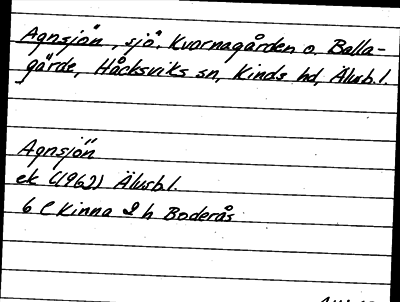 Agnsjön, sjö. Kvarnagården o. Balla-
gärde, Håcksviks sn, Kinds hd, Älvsb.l.
Agnsjön
ek (1962) Älvsb.l.
6 C Kinna 2 h Boderås